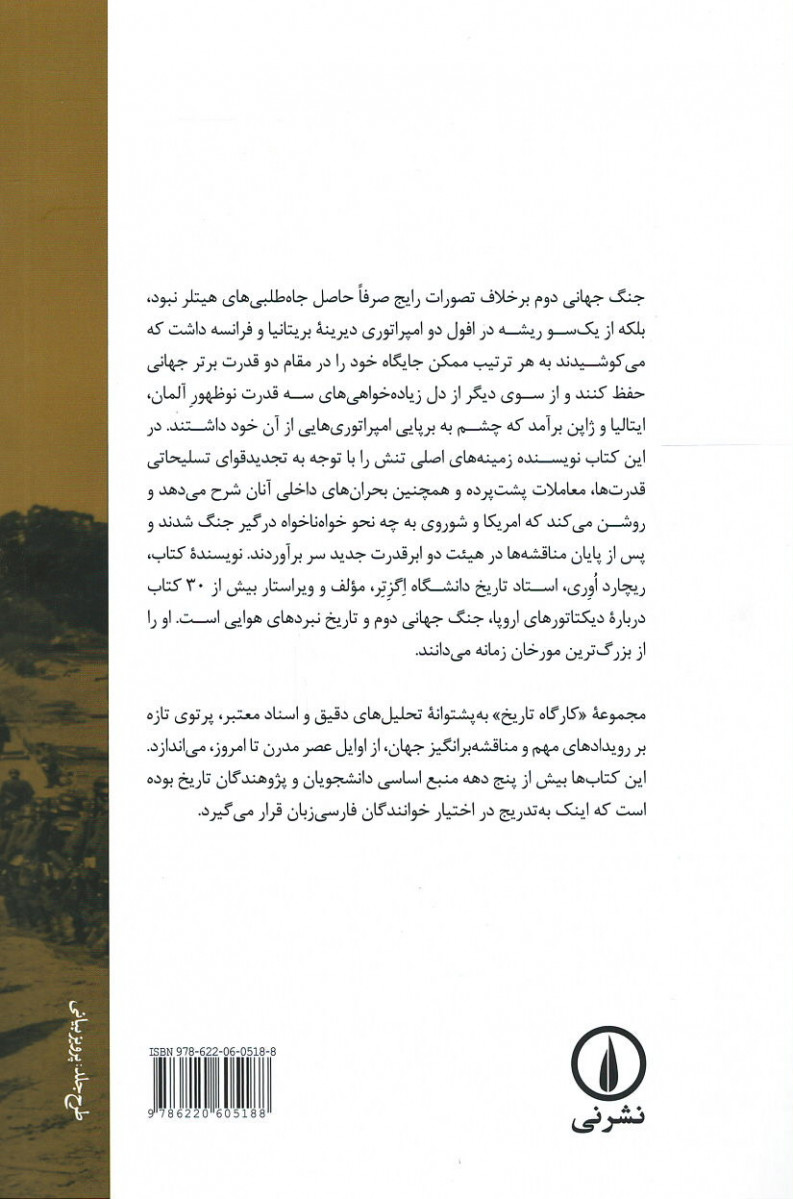 جنگ جهانی دوم برخلاف تصورات رایج صرفاً حاصل جاه‌طلبی‌های هیتلر نبود،
بلکه از یک‌سو ریشه در افول دو امپراتوری دیرینهٔ بریتانیا و فرانسه داشت که
می‌کوشیدند به هر ترتیب ممکن جایگاه خود را در مقام دو قدرت برتر جهانی
حفظ کنند و از سوی دیگر از دل زیاده‌خواهی‌های سه قدرت نوظهورِ آلمان،
ایتالیا و ژاپن برآمد که چشم به برپایی امپراتوری‌هایی از آن خود داشتند. در
این کتاب نویسنده زمینه‌های اصلی تنش را با توجه به تجدیدقوای تسلیحاتی
قدرت‌ها، معاملات پشت‌پرده و همچنین بحران‌های داخلی آنان شرح می‌دهد و
روشن می‌کند که امریکا و شوروی به چه نحو خواه‌ناخواه درگیر جنگ شدند و
پس از پایان مناقشه‌ها در هیئت دو ابرقدرت جدید سر برآوردند. نویسندهٔ کتاب،
ریچارد اُوِری، استاد تاریخ دانشگاه اِگزِتِر، مؤلف و ویراستار بیش از ۳۰ کتاب
دربارهٔ دیکتاتورهای اروپا، جنگ جهانی دوم و تاریخ نبردهای هوایی است. او را
از بزرگ‌ترین مورخان زمانه می‌دانند.
مجموعهٔ «کارگاه تاریخ» به‌پشتوانهٔ تحلیل‌های دقیق و اسناد معتبر، پرتوی تازه
بر رویدادهای مهم و مناقشه‌برانگیز جهان، از اوایل عصر مدرن تا امروز، می‌اندازد.
این کتاب‌ها بیش از پنج دهه منبع اساسی دانشجویان و پژوهندگان تاریخ بوده
است که اینک به‌تدریج در اختیار خوانندگان فارسی‌زبان قرار می‌گیرد.
طرح جلد: پرویز بیانی
ISBN 978-622-06-0518-8
9 786220 605188
نشرنی